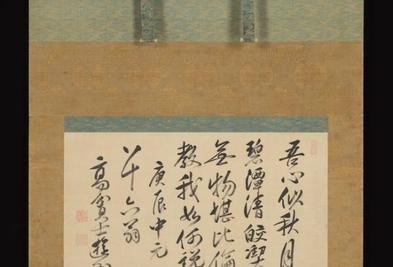 吾心似秋月
碧潭清皎潔
無物堪比倫
教我如何説
庚辰中元
八十六翁
高